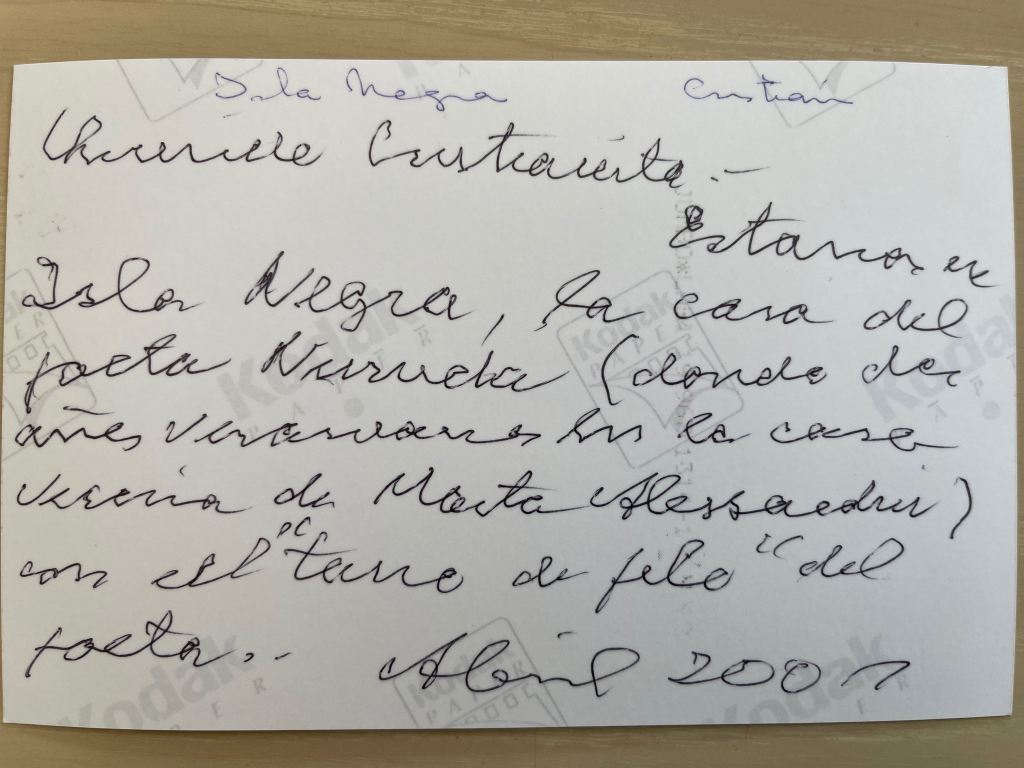 Isla Negra Cristian
Cristiancito.-
Estamos en
Isla Negra, la casa del
poeta Neruda (donde dos
años veraneamos en la casa
vecina de Marta Alessandri)
con el "tarro de pelo" del
poeta..- Abril 2001
Kodak
PAPER